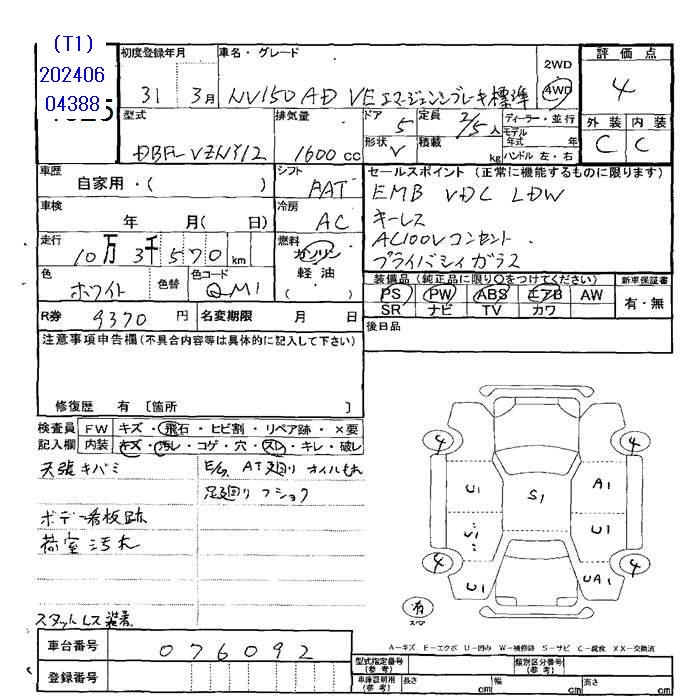 (T1)
202406
04388
初度登録年月 車名・グレード 2WD 評価点
31 3月 NV150 AD VE エマージェンシィブレーキ標準 4WD 4
型式 排気量 ドア 5 定員 2/5人 ディーラー・並行
モデル 年式 年 外装 内装
DBF-VZNY12 1600cc 形状 V 積載 kg ハンドル 左・右 C C
車歴 自家用・( ) シフト AAT セールスポイント (正常に機能するものに限ります)
EMB VDC LDW
車検 年 月( 日) 冷房 AC キーレス
AC100Vコンセント
走行 10万3千570km 燃料 ガソリン 軽油 ( ) プライバシィガラス
色 ホワイト 色替 色コード QM1 装備品 (純正品に限り○をつけてください) 新車保証書
PS PW ABS エアB AW 有・無
SR ナビ TV カワ
R券 9370円 名変期限 月 日 後日品
注意事項申告欄(不具合内容等は具体的に記入して下さい)
修復歴 有 [箇所 ]
検査員 FW キズ・飛石・ヒビ割・リペア跡・×要
記入欄 内装 キズ・汚レ・コゲ・穴・スレ・キレ・破レ
天張キバミ E/G、AT廻り オイルもれ
足廻り フショク
ボデー看板跡
荷室汚れ
スタットレス装着
4 4
U1 S1 A1
U1 U1
4 4
U1 UA1
有 スペア
A-キズ E-エクボ U-凹み W-補修跡 S-サビ C-腐食 XX-交換済
車台番号 076092
型式指定番号 (参考) 類別区分番号 (参考)
登録番号 車庫証明用 (参考) 長さ cm 幅 cm 高さ cm